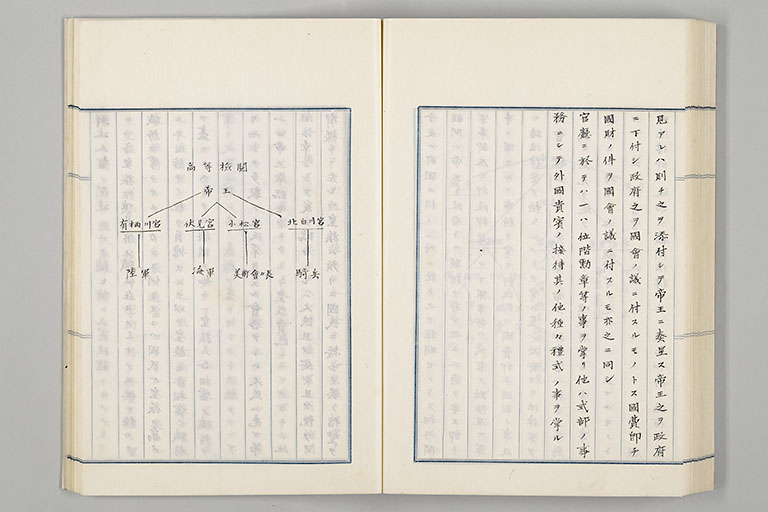 見アレハ則チ之ヲ添付シテ帝王ニ奏呈ス帝王之ヲ政府
ニ下付シ政府之ヲ國會ノ議ニ付スルモノトス國費即チ
國財ノ件ヲ國會ノ議ニ付スルモ亦之ニ同シ
官廳ニ於テハ一ハ位階勲章等ノ事ヲ掌リ他ハ式部ノ事
務ニシテ外國貴賓ノ接待其ノ他種々禮式ノ事ヲ掌ル
高等檢閲
帝王
北白川宮
小松宮
伏見宮
有栖川宮
騎兵
美術會々長
海軍
陸軍